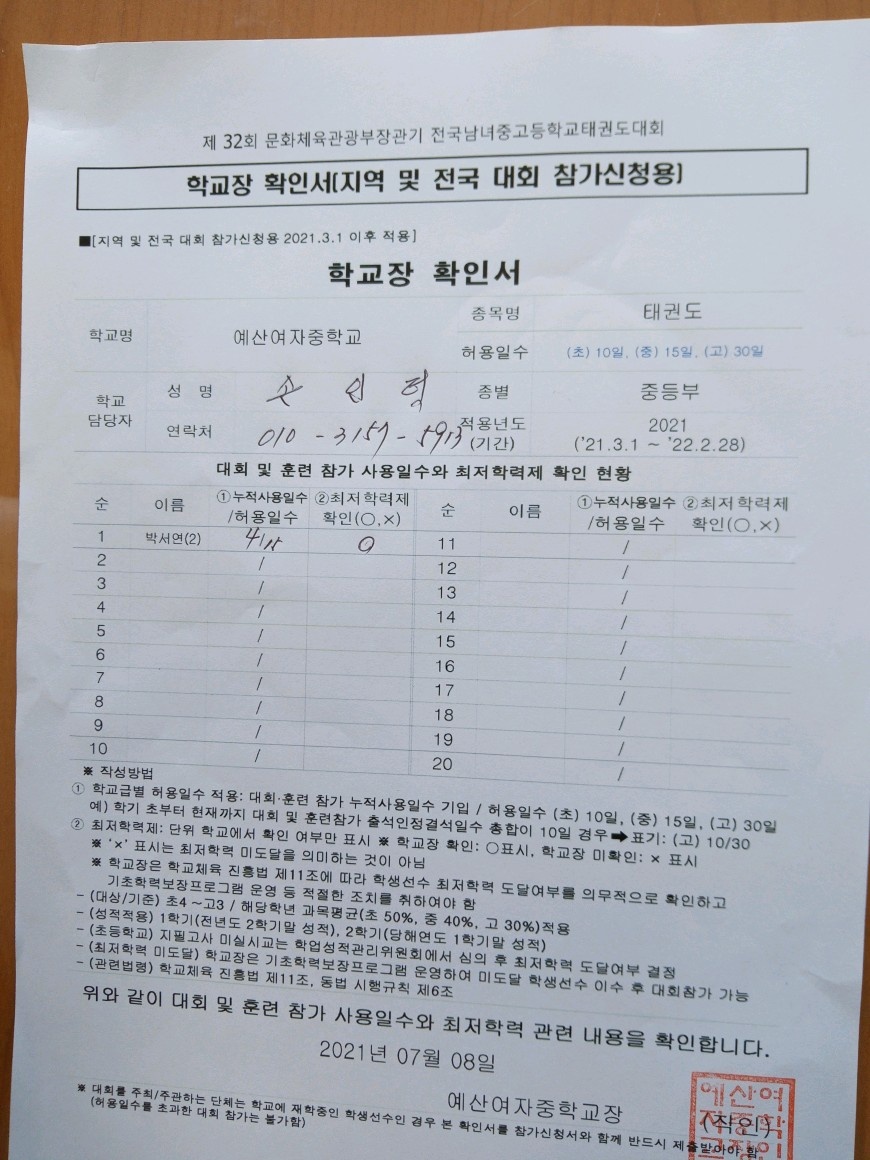 제 32회 문화체육관광부장관기 전국남녀중고등학교태권도대회
학교장 확인서(지역 및 전국 대회 참가신청용)
■[지역 및 전국 대회 참가신청용 2021.3.1 이후 적용]
학교장 확인서
학교명 예산여자중학교 종목명 태권도
허용일수 (초) 10일, (중) 15일, (고) 30일
학교 담당자 성 명 손 인 혁 종별 중등부
연락처 010 - 3157 - 5913 적용년도 (기간) 2021 ('21.3.1 ~ '22.2.28)
대회 및 훈련 참가 사용일수와 최저학력제 확인 현황
순 이름 ①누적사용일수 /허용일수 ②최저학력제 확인(○,×) 순 이름 ①누적사용일수 /허용일수 ②최저학력제 확인(○,×)
1 박서연(2) 4/15 ○ 11 /
2 / 12 /
3 / 13 /
4 / 14 /
5 / 15 /
6 / 16 /
7 / 17 /
8 / 18 /
9 / 19 /
10 / 20 /
※ 작성방법
① 학교급별 허용일수 적용: 대회·훈련 참가 누적사용일수 기입 / 허용일수 (초) 10일, (중) 15일, (고) 30일
예) 학기 초부터 현재까지 대회 및 훈련참가 출석인정결석일수 총합이 10일 경우➡표기: (고) 10/30
② 최저학력제: 단위 학교에서 확인 여부만 표시 ※ 학교장 확인: ○표시, 학교장 미확인: × 표시
※ '×' 표시는 최저학력 미도달을 의미하는 것이 아님
※ 학교장은 학교체육 진흥법 제11조에 따라 학생선수 최저학력 도달여부를 의무적으로 확인하고
기초학력보장프로그램 운영 등 적절한 조치를 취하여야 함
- (대상/기준) 초4 ~ 고3 / 해당학년 과목평균(초 50%, 중 40%, 고 30%)적용
- (성적적용) 1학기(전년도 2학기말 성적), 2학기(당해연도 1학기말 성적)
- (초등학교) 지필고사 미실시교는 학업성적관리위원회에서 심의 후 최저학력 도달여부 결정
- (최저학력 미도달) 학교장은 기초학력보장프로그램 운영하여 미도달 학생선수 이수 후 대회참가 가능
- (관련법령) 학교체육 진흥법 제11조, 동법 시행규칙 제6조
위와 같이 대회 및 훈련 참가 사용일수와 최저학력 관련 내용을 확인합니다.
2021년 07월 08일
예산여자중학교장 (직인)
※ 대회를 주최/주관하는 단체는 학교에 재학중인 학생선수인 경우 본 확인서를 참가신청서와 함께 반드시 제출받아야 함
(허용일수를 초과한 대회 참가는 불가함)
예산여
자중학